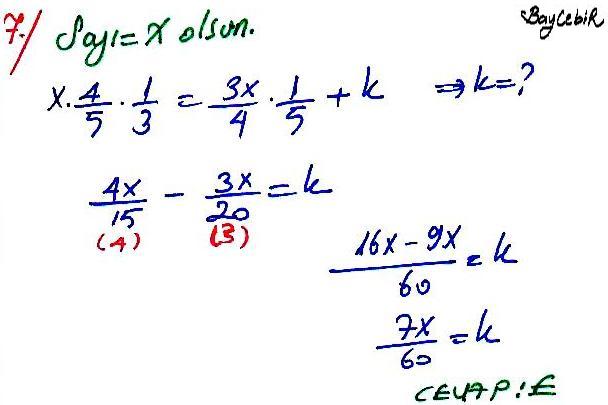 7./ Sayı = x olsun.
BayCebiR
x · 4/5 · 1/3 = 3x/4 · 1/5 + k ⇒ k = ?
4x/15 - 3x/20 = k
(4) (3)
16x - 9x/60 = k
7x/60 = k
CEVAP: E